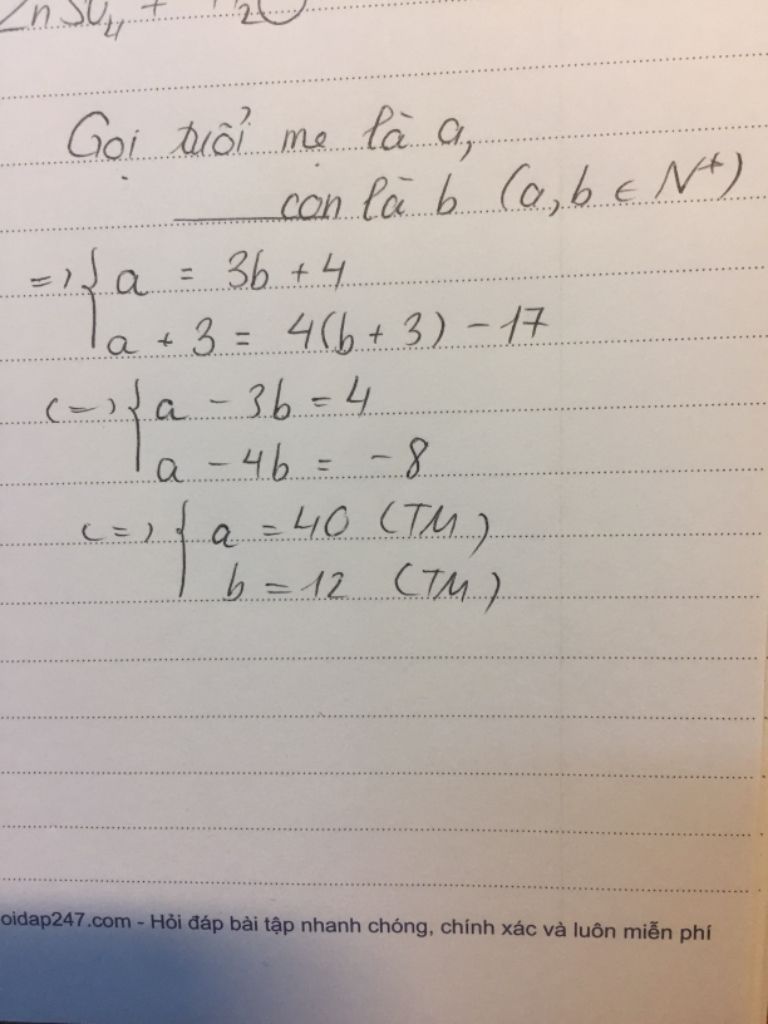 ZnSO4 +
Gọi tuổi mẹ là a,
con là b (a, b ∈ N+)
=> { a = 3b + 4
a + 3 = 4(b + 3) - 17
<=> { a - 3b = 4
a - 4b = -8
<=> { a = 40 (TM)
b = 12 (TM)
oidap247.com - Hỏi đáp bài tập nhanh chóng, chính xác và luôn miễn phí